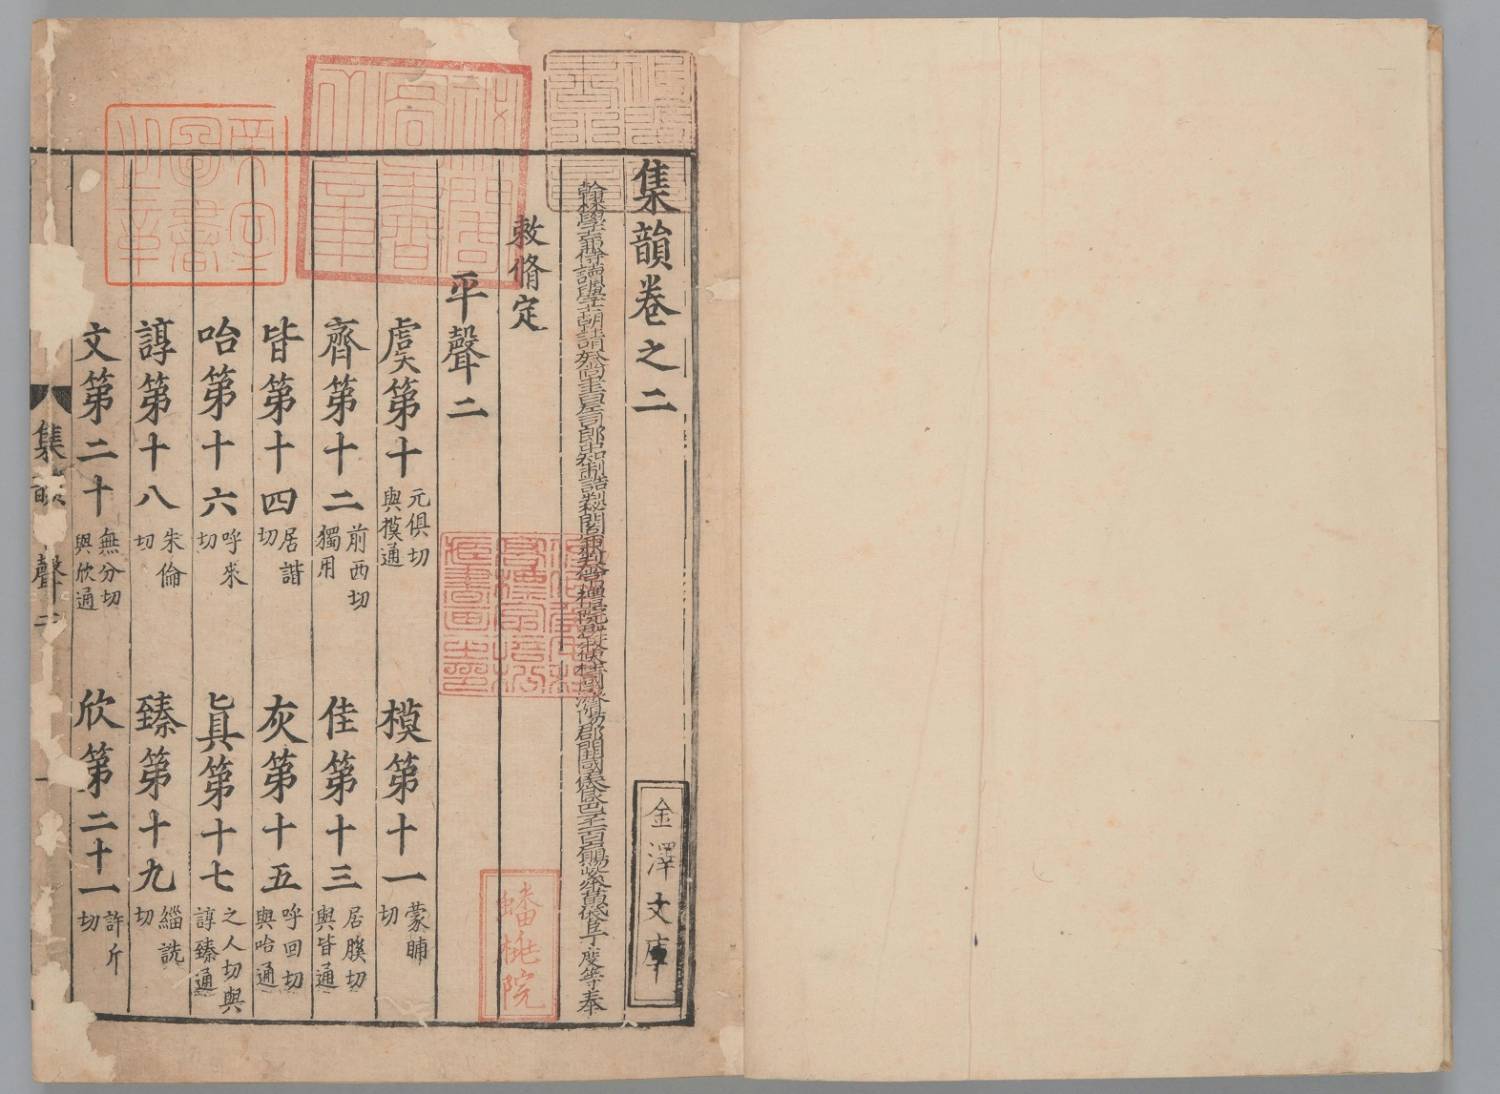 集韻卷之二
翰林學士兼侍讀學士朝請大夫尚書左司郎中知制誥判秘閣兼判太常禮院羣牧使柱國濟陽郡開國侯食邑一千二百戶賜紫金魚袋臣丁度等奉
敕脩定
平聲二
虞第十 元俱切與模通
模第十一 蒙晡切
齊第十二 前西切獨用
佳第十三 居膎切與皆通
皆第十四 居諧切
灰第十五 呼回切與咍通
咍第十六 呼來切
眞第十七 之人切與諄臻通
諄第十八 朱倫切
臻第十九 緇詵切
文第二十 無分切與欣通
欣第二十一 許斤切
集 聲二
一
金澤文庫
蟠桃院